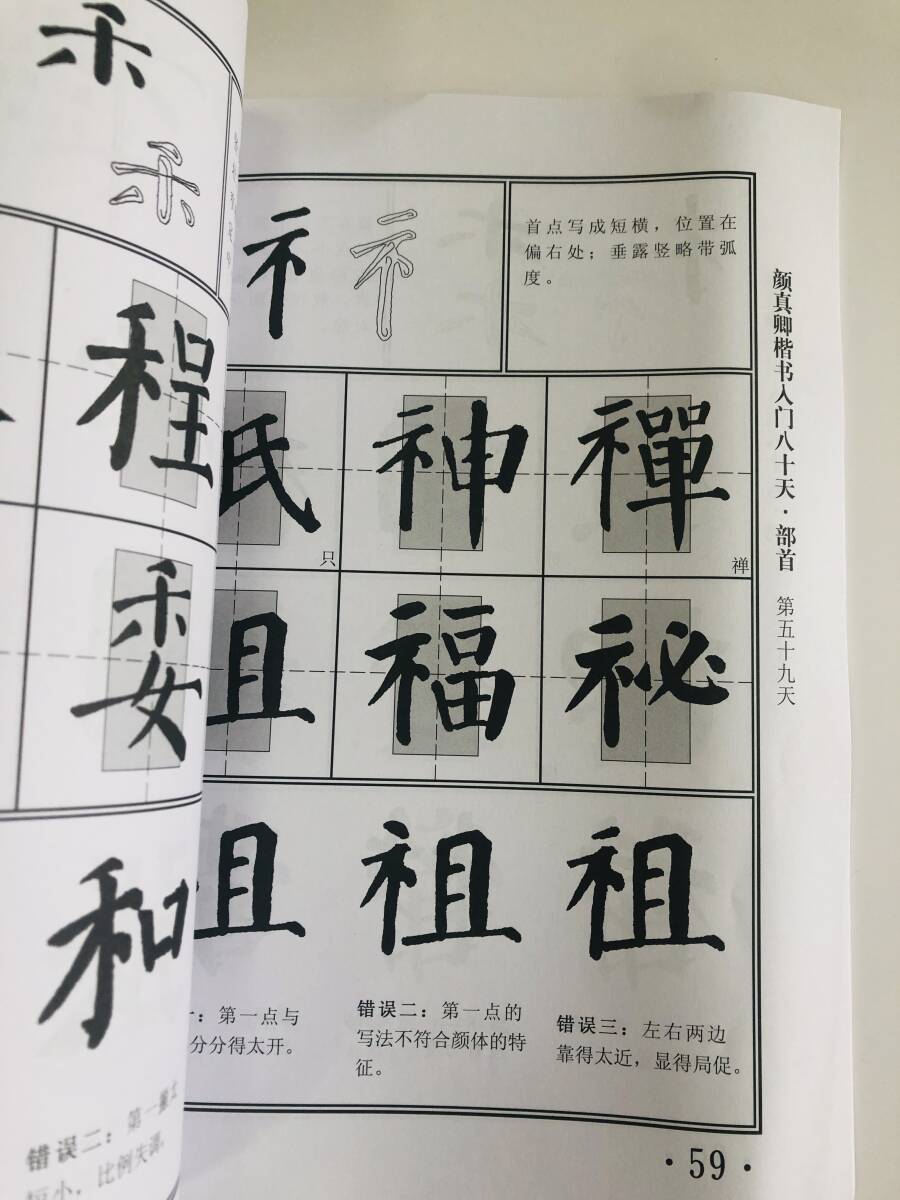 禾
禾
程
委
和
错误二：第一撇太
短小，比例失调，
礻
礻
首点写成短横，位置在
偏右处；垂露竖略带弧
度。
氏 神 禪
只 禅
且 福 祕
且 祖 祖
：第一点与
分分得太开。
错误二：第一点的
写法不符合颜体的特
征。
错误三：左右两边
靠得太近，显得局促。
颜真卿楷书入门八十天·部首 第五十九天
·59·